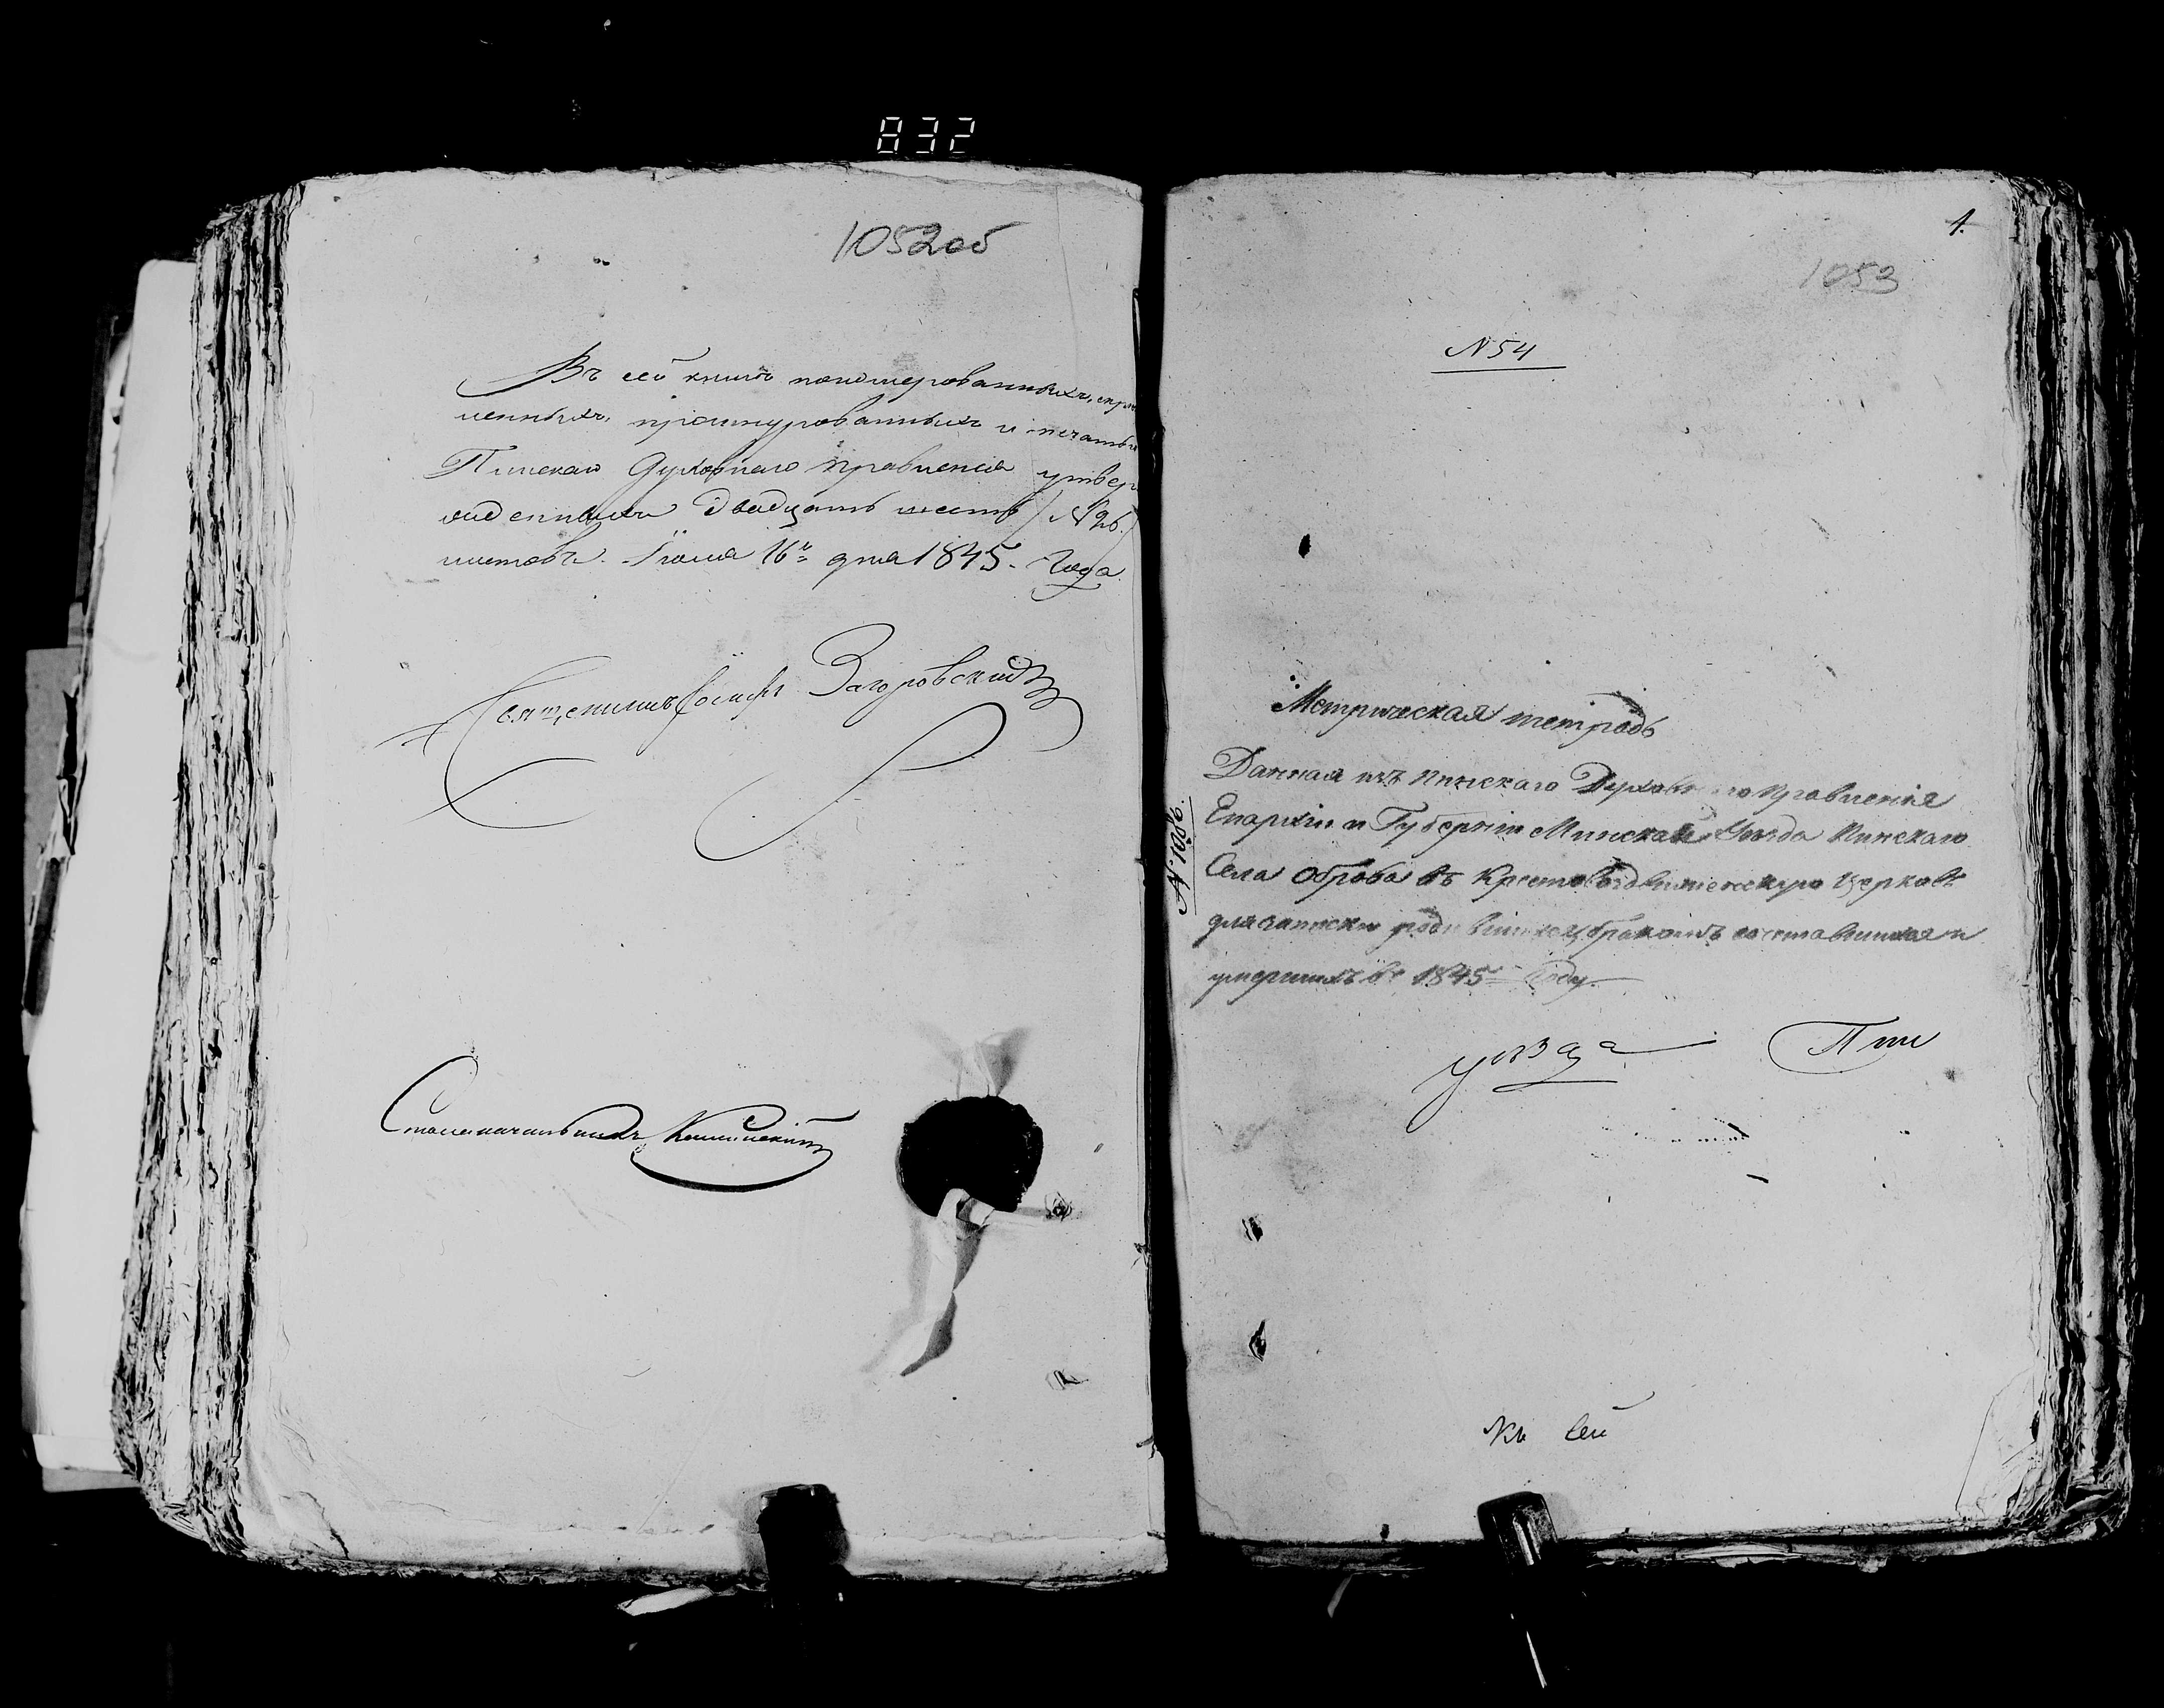 832
1052об
Въ сей книгѣ пономерованныхъ, скрѣ
пенныхъ, прошнурованныхъ и печатью
Пинскаго Духовнаго Правленія утвер
жденныхъ двадцать шесть /№ 26./
листовъ. Іюля 16го дня 1845. Года.
Священникъ Іосифъ Загоровскій
Столоначальникъ
1.
1053
N 54
Метрическая тетрадь
Данная изъ Пинскаго Духовнаго Правленія
Епархіи и Губерніи Минской Уѣзда Пинскаго
Села Оброва въ Крестовоздвиженскую Церковь
для записки родившихся, бракомъ сочетавшихся и
умершихъ въ 1845м Году.
N 1086.
уѣзда Пин
Къ Сей